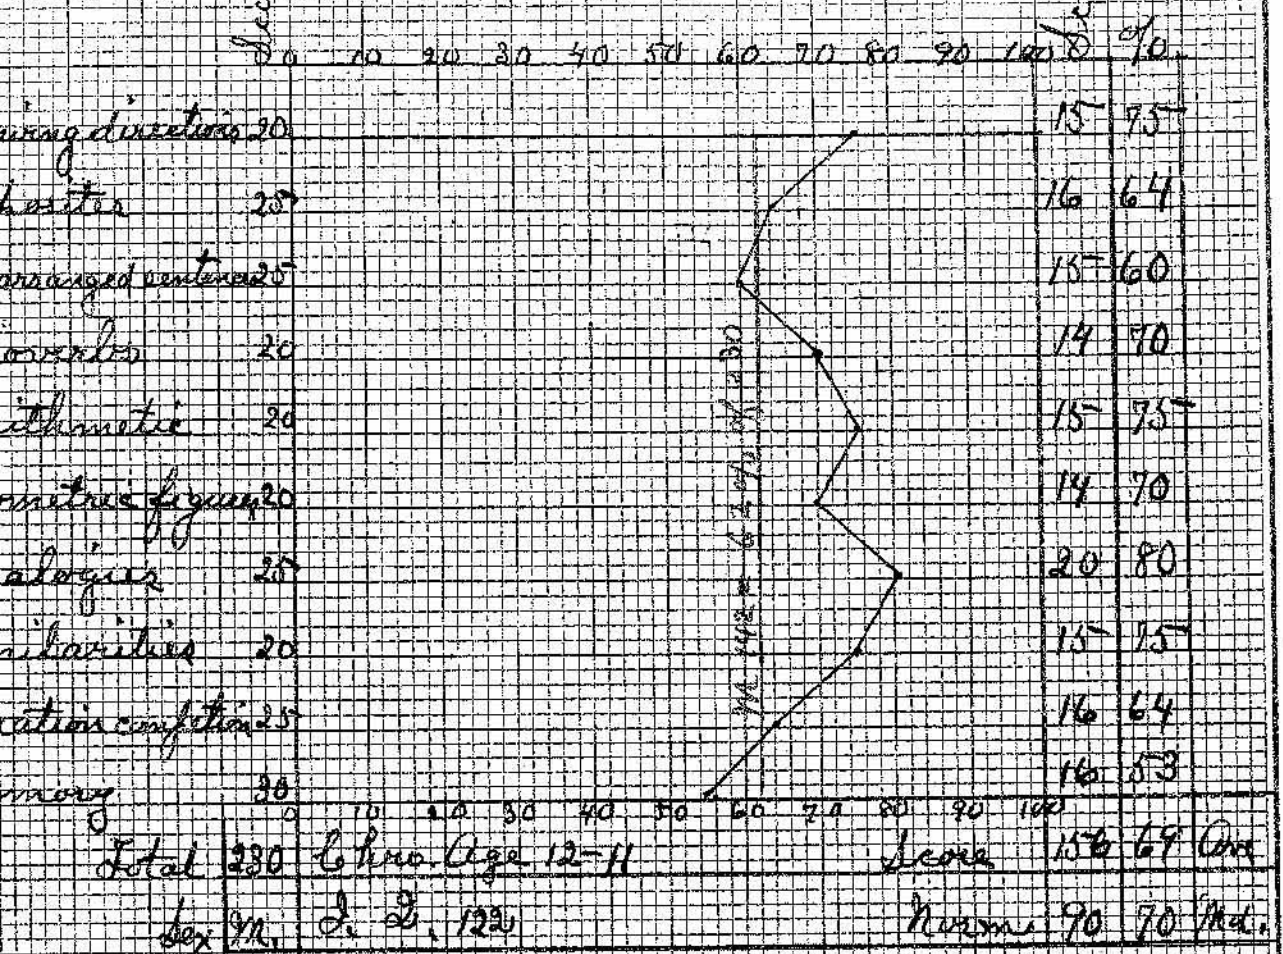 0 10 20 30 40 50 60 70 80 90 100 %
wing directions 20 15 75
posites 25 16 64
arranged sentences 25 15 60
overbs 20 14 70
ithmetic 20 15 75
ometric figures 20 14 70
alogies 25 20 80
milarities 20 15 75
cation completion 25 16 64
mory 30 16 53
M 142 = 62 % 30
0 10 20 30 40 50 60 70 80 90 100
Total 230 Chro. Age 12-11 Score 156 69 Ave
Sex M. I. Q. 122 Norm. 90 70 Md.